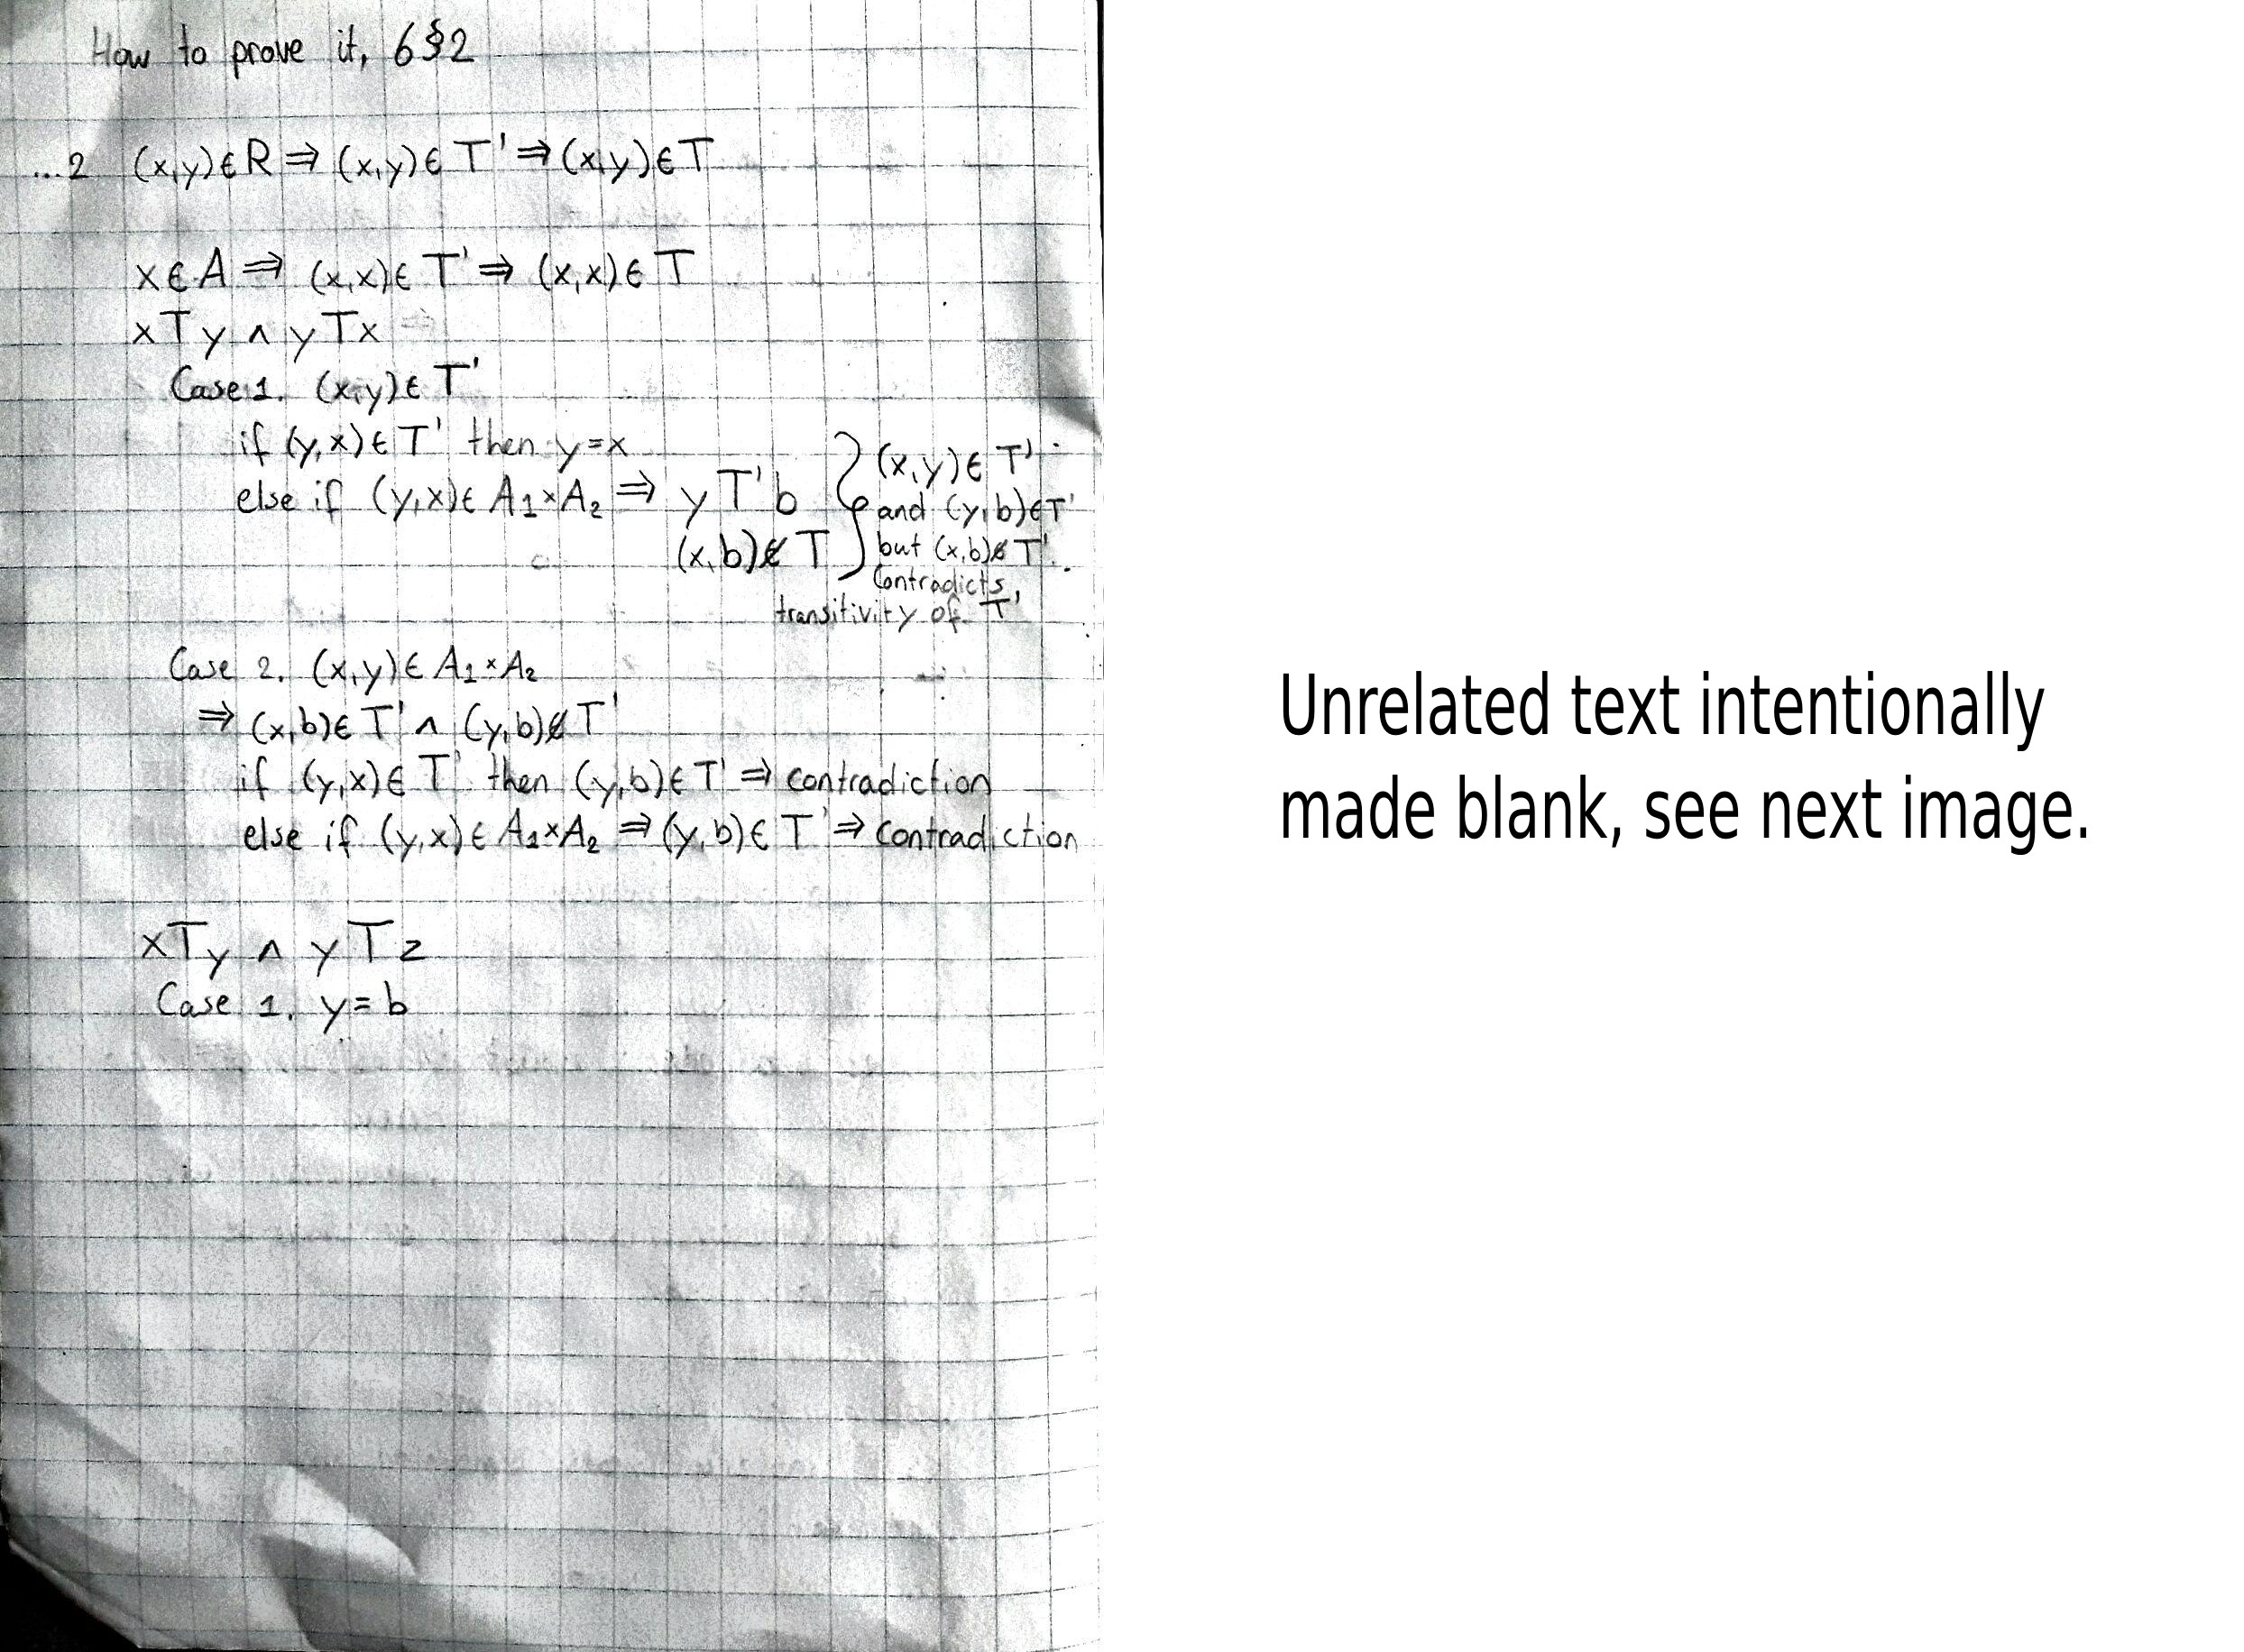 How to prove it, 6§2
...2 (x,y)∈R ⇒ (x,y)∈T' ⇒ (x,y)∈T
x∈A ⇒ (x,x)∈T' ⇒ (x,x)∈T
xTy ∧ yTx
Case 1. (x,y)∈T'
if (y,x)∈T' then y=x
else if (y,x)∈A₁×A₂ ⇒ yT'b
(x,b)∉T
(x,y)∈T'
and (y,b)∈T'
but (x,b)∉T'.
Contradicts
transitivity of T'
Case 2. (x,y)∈A₁×A₂
⇒ (x,b)∈T' ∧ (y,b)∉T'
if (y,x)∈T' then (y,b)∈T' ⇒ contradiction
else if (y,x)∈A₁×A₂ ⇒ (y,b)∈T' ⇒ contradiction
xTy ∧ yTz
Case 1. y=b
Unrelated text intentionally
made blank, see next image.